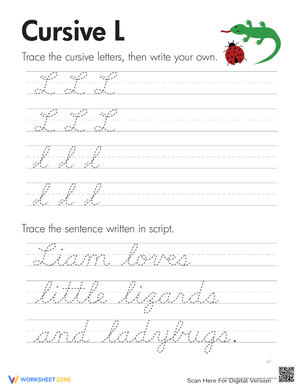 Cursive L
Trace the cursive letters, then write your own.
L L L
L L L
l l l
l l l
Trace the sentence written in script.
Liam loves
little lizards
and ladybugs.
WORKSHEETZONE
Scan Here For Digital Version